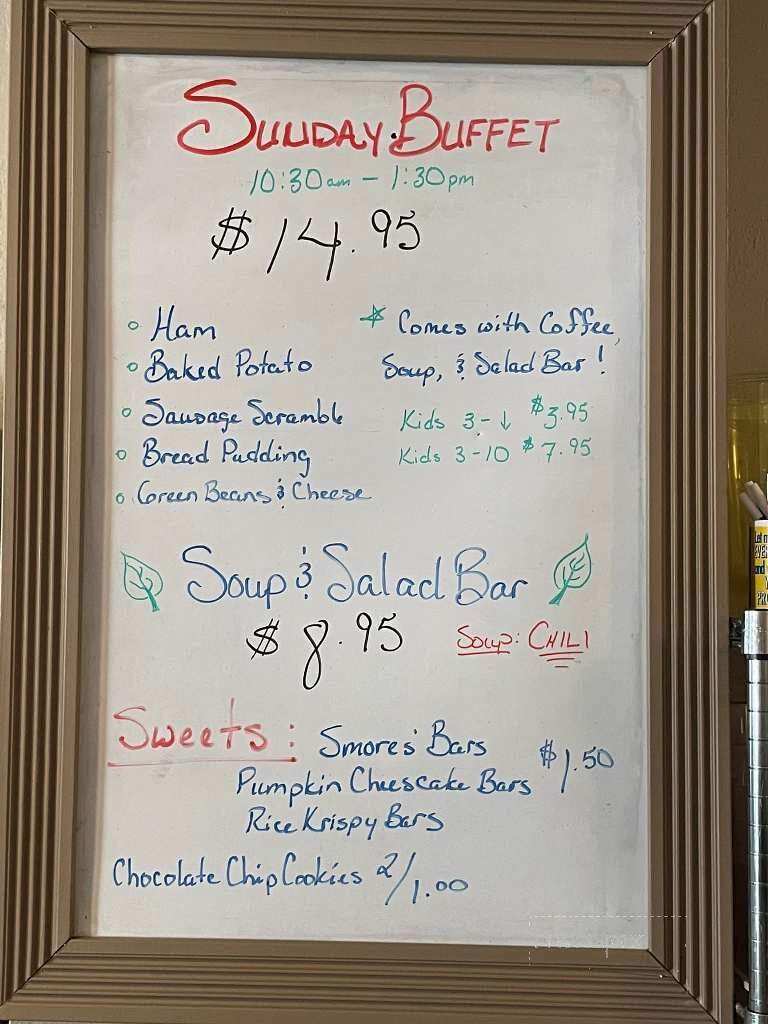 SUNDAY BUFFET
10:30am - 1:30pm
$14.95
Ham
Baked Potato
Sausage Scramble
Bread Pudding
Green Beans & Cheese
* Comes with Coffee,
Soup, & Salad Bar!
Kids 3-↓ $3.95
Kids 3-10 $7.95
Soup & Salad Bar
$8.95
Soup: CHILI
Sweets: Smores' Bars $1.50
Pumpkin Cheescake Bars
Rice Krispy Bars
Chocolate Chip Cookies 2/1.00